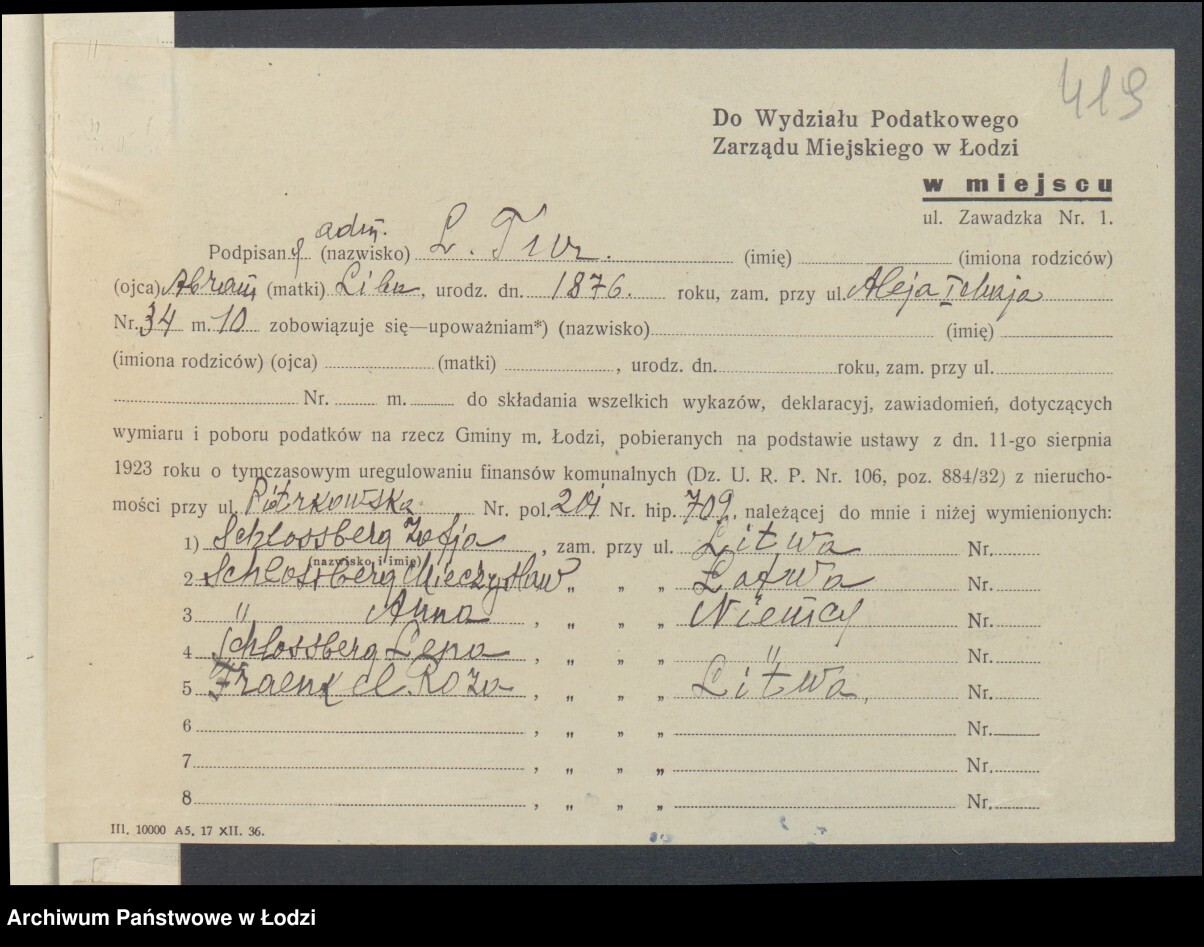 419
Do Wydziału Podatkowego
Zarządu Miejskiego w Łodzi
w miejscu
ul. Zawadzka Nr. 1.
adm.
Podpisany (nazwisko) L. Tur. (imię) (imiona rodziców)
(ojca) Abram (matki) Liba, urodz. dn. 1876. roku, zam. przy ul. Aleja I Maja
Nr. 34 m. 10 zobowiązuje się—upoważniam*) (nazwisko) (imię)
(imiona rodziców) (ojca) (matki) , urodz. dn. roku, zam. przy ul.
Nr. m. do składania wszelkich wykazów, deklaracyj, zawiadomień, dotyczących
wymiaru i poboru podatków na rzecz Gminy m. Łodzi, pobieranych na podstawie ustawy z dn. 11-go sierpnia
1923 roku o tymczasowym uregulowaniu finansów komunalnych (Dz. U. R. P. Nr. 106, poz. 884/32) z nierucho-
mości przy ul. Piotrkowska Nr. pol. 201 Nr. hip. 709, należącej do mnie i niżej wymienionych:
1) Schlossberg Zofja, zam. przy ul. Litwa Nr.
(nazwisko i imię)
2 Schlossberg Mieczysław „ „ „ Łotwa Nr.
3 " Anna , „ „ „ Niemcy Nr.
4 Schlossberg Lena , „ „ „ " Nr.
5 Fraenkel Roza , „ „ „ Litwa, Nr.
6 , „ „ „ Nr.
7 , „ „ „ Nr.
8 , „ „ „ Nr.
III. 10000 A5. 17 XII. 36.
Archiwum Państwowe w Łodzi